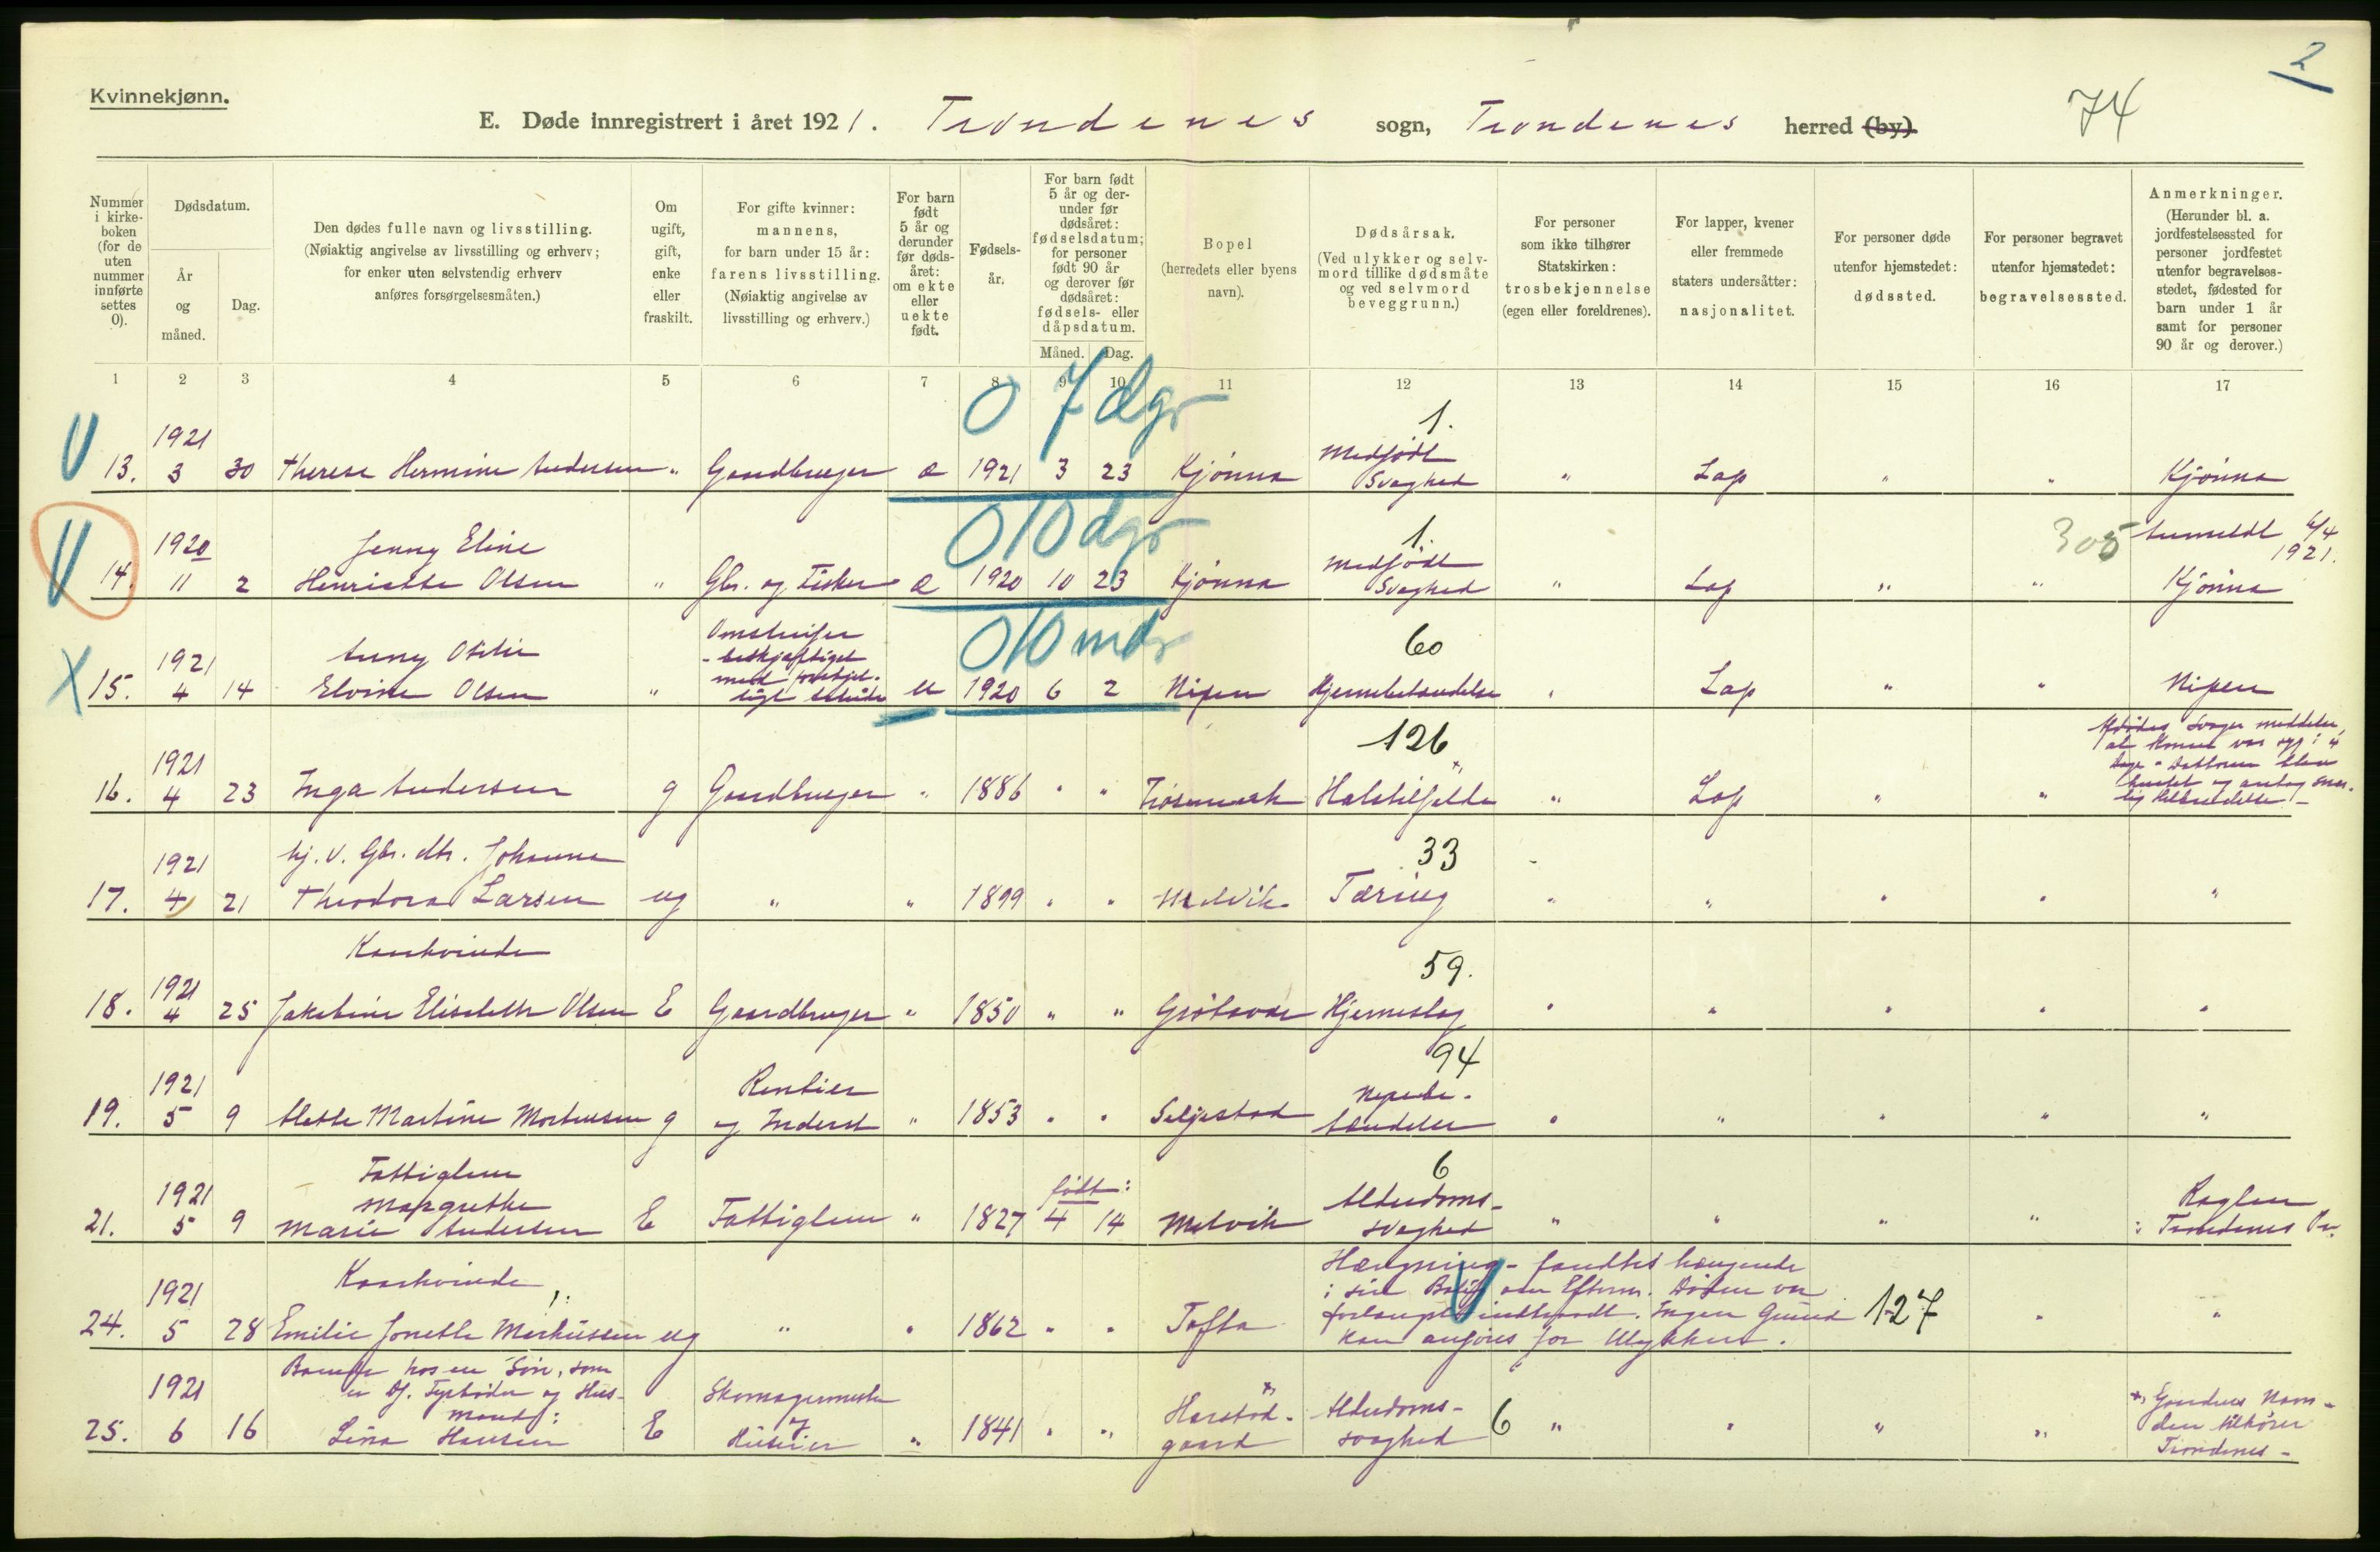 2
Kvinnekjønn.
74
E. Døde innregistrert i året 1921. Trondenes sogn, Trondenes herred (by)
Nummer i kirke-boken (for de uten nummer innførte settes 0).
Dødsdatum.
År og måned.
Dag.
Den dødes fulle navn og livsstilling.
(Nøiaktig angivelse av livsstilling og erhverv;
for enker uten selvstendig erhverv
anføres forsørgelsesmåten.)
Om ugift, gift, enke eller fraskilt.
For gifte kvinner: mannens,
for barn under 15 år:
farens livsstilling.
(Nøiaktig angivelse av
livsstilling og erhverv.)
For barn født 5 år og derunder før døds-året: om ekte eller uekte født.
Fødsels-år.
For barn født 5 år og der-under før dødsåret: fødselsdatum; for personer født 90 år og derover før dødsåret: fødsels- eller dåpsdatum.
Måned. Dag.
Bopel
(herredets eller byens navn).
Dødsårsak.
(Ved ulykker og selv-mord tillike dødsmåte og ved selvmord beveggrunn.)
For personer som ikke tilhører Statskirken: trosbekjennelse (egen eller foreldrenes).
For lapper, kvener eller fremmede staters undersåtter: nasjonalitet.
For personer døde utenfor hjemstedet: dødssted.
For personer begravet utenfor hjemstedet: begravelsessted.
Anmerkninger.
(Herunder bl. a. jordfestelsessted for personer jordfestet utenfor begravelses-stedet, fødested for barn under 1 år samt for personer 90 år og derover.)
1 2 3 4 5 6 7 8 9 10 11 12 13 14 15 16 17
0 7 dgr
1.
13. 1921 3 30 Therese Hermine Andersen " Gaardbruger e 1921 3 23 Kjønna Medfødt Svaghed " Lap " " Kjønna
0 10 dgr
1.
305 Anmeldt 6/4 1921.
14. 1920 11 2 Jenny Eline Henriette Olsen " Gbr. og Fisker e 1920 10 23 Kjønna Medfødt Svaghed " Lap " " Kjønna
0 10 mdr
60
15. 1921 4 14 Anny Otilie Elvine Olsen " Omstreifer - beskjæftiget med forskjel-ligt Arbeide u 1920 6 2 Nipen Hjernebetændelse " Lap " " Nipen
126
16. 1921 4 23 Inga Andersen g Gaardbruger " 1886 " " Halstilfælde " Lap " "
Afdødes Svoger meddeler,
at Konen var syg i 4
Dage -
33
17. 1921 4 21 hj. v. Gbr. dtr. Johanna Theodora Larsen ug " " 1899 " " Melvik Tæring " " " " "
59.
18. 1921 4 25 Kaarkvinde Jakobine Elisabeth Olsen E Gaardbruger " 1850 " " Grøtavær Hjerneslag " " " " "
94
19. 1921 5 9 Martine Mortensen g Rentier og Inderst " 1853 " " Seljestad " " " " "
6
21. 1921 5 9 Fattiglem Margrethe Marie Andersen E Fattiglem " 1827 født: 4 14 Melvik Alderdoms-svaghed " " " "
i Trondenes
24. 1921 5 28 Kaarkvinde Emilie Jonette Markussen ug " " 1862 " " Tofta
Hængning - fandtes hængende
i sin Bolig om Efterm. Døden var
forlængst indtraadt. Ingen Grund
kan anføres for Ulykken.
127 " "
25. 1921 6 16 hos en Søn, som er Dj. Fyrbøder og Hus-mand: Lina Hansen E Skomagermester Huseier " 1841 " " Harstad-gaard x) Alderdoms-svaghed 6 " " " "
x) Gaardens Navn -
den tilhører
Trondenes -